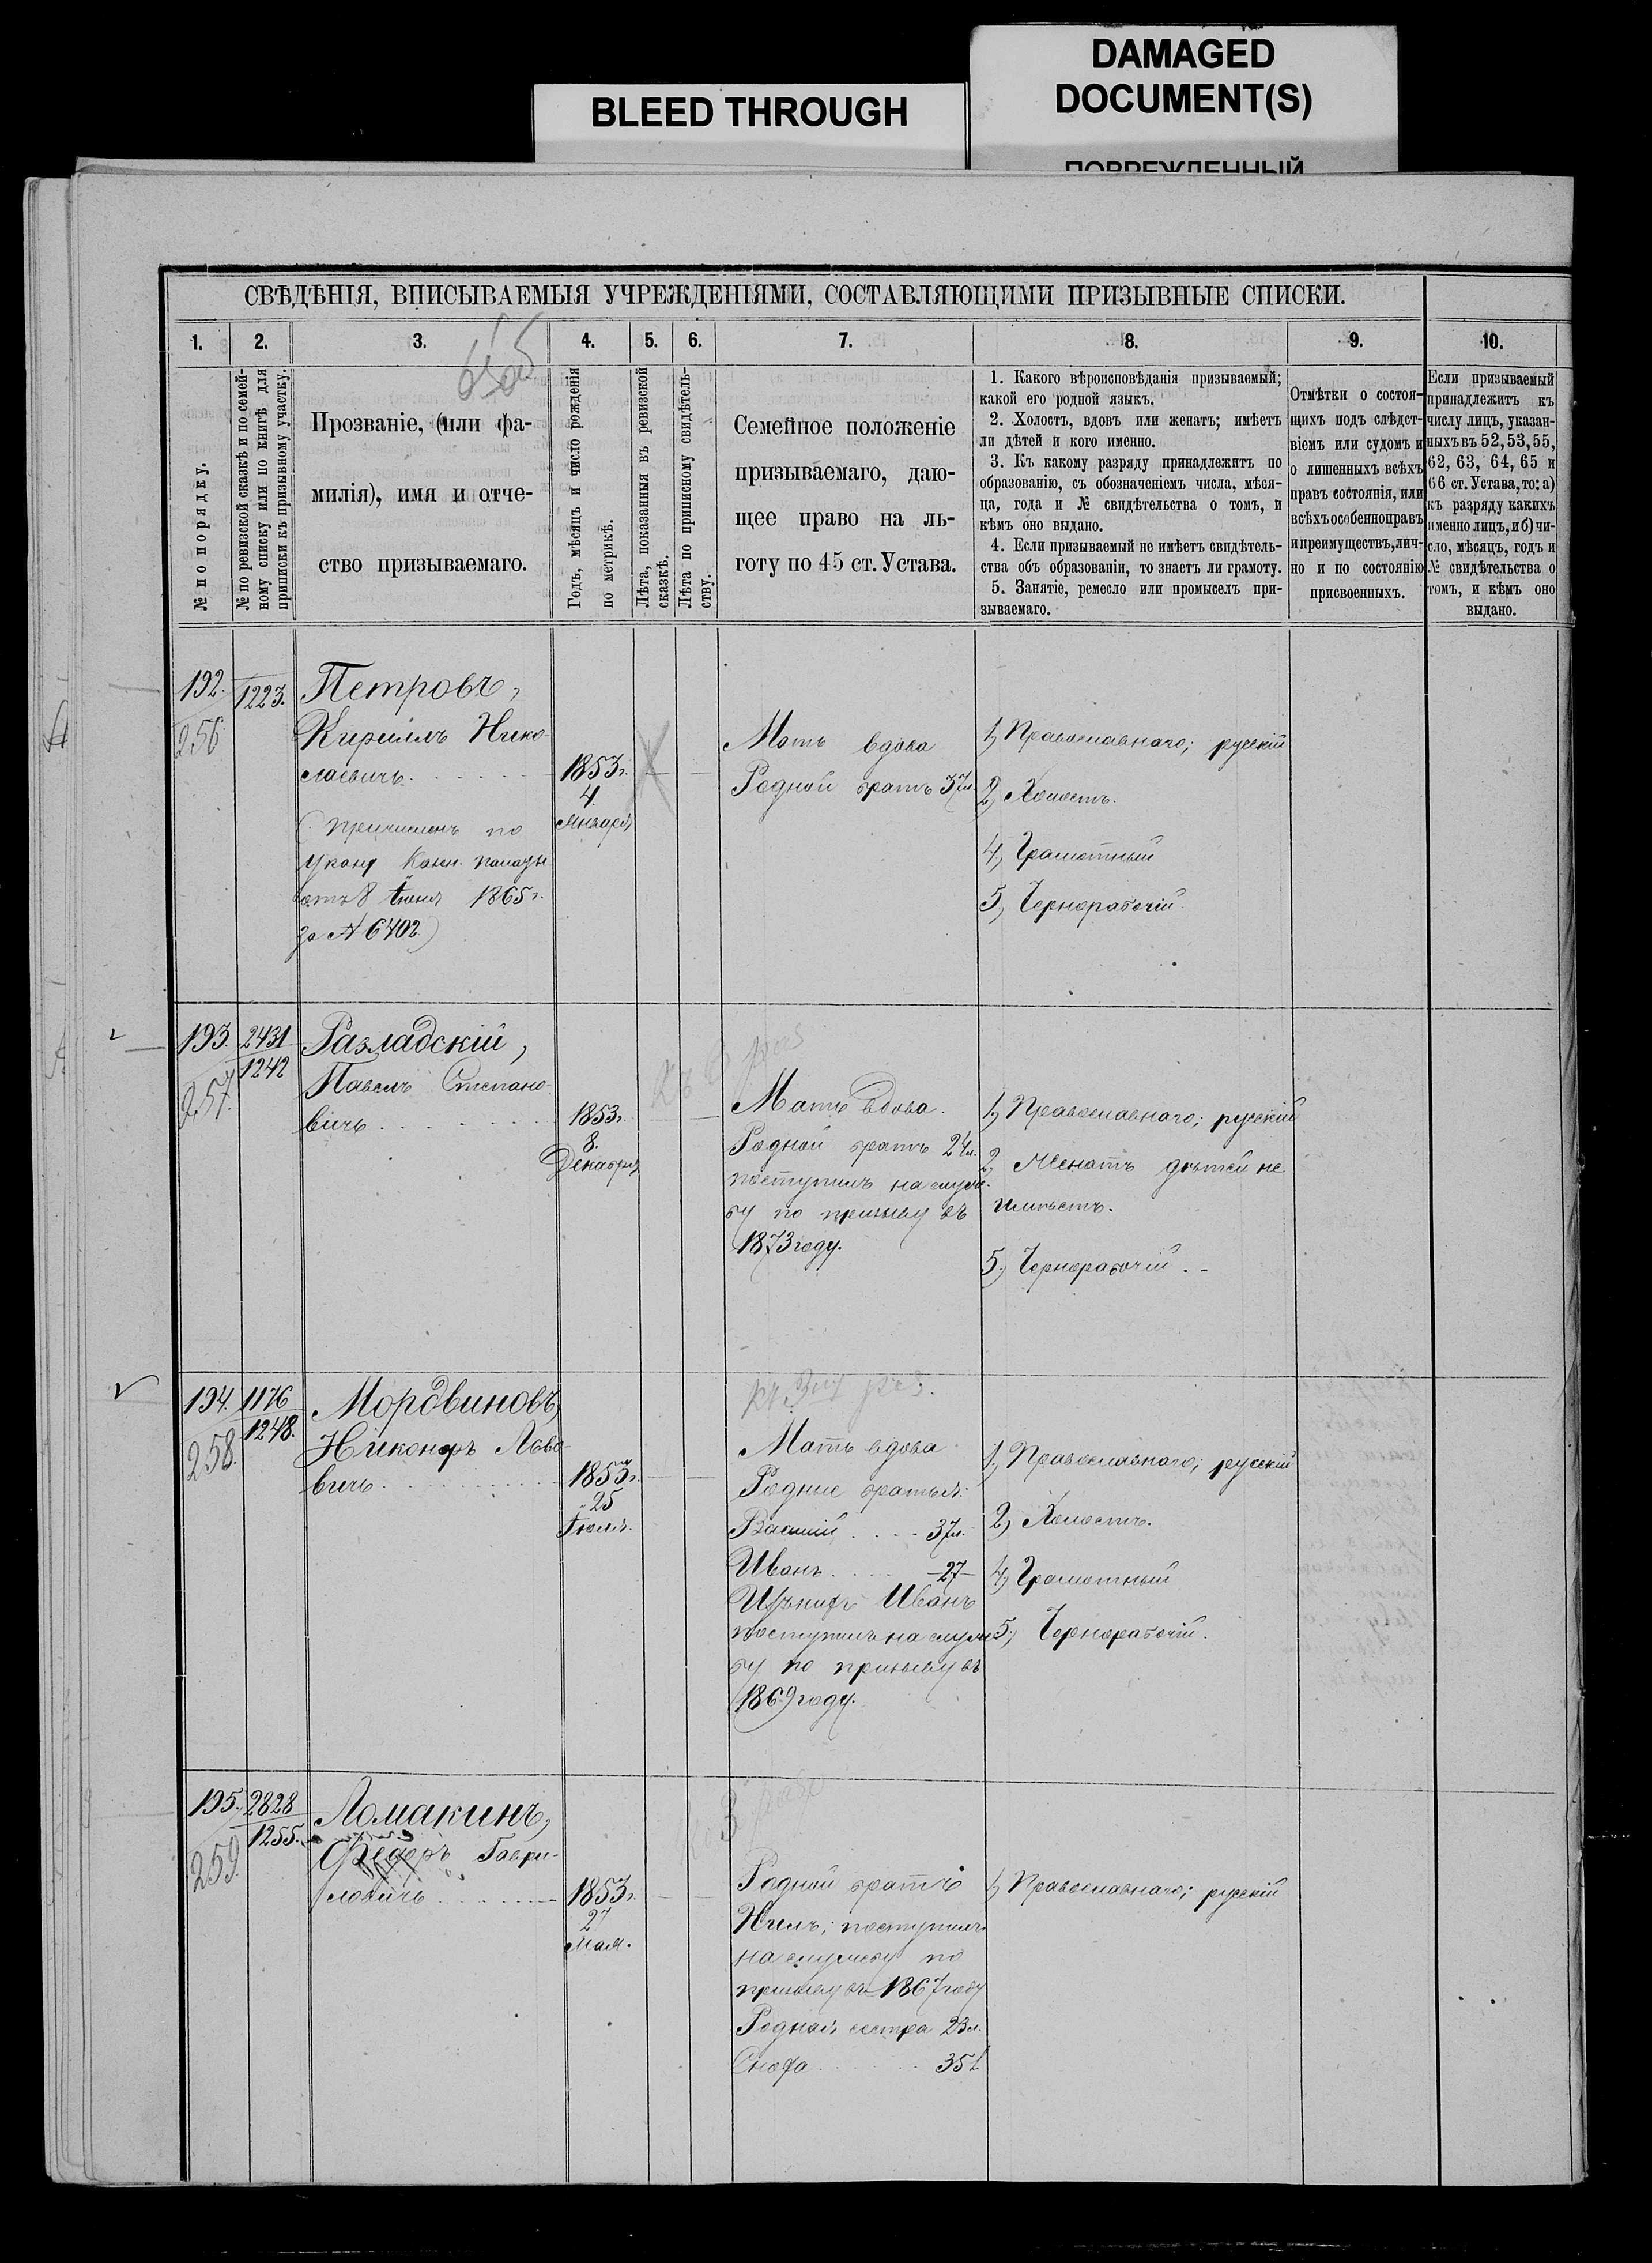 BLEED THROUGH
DAMAGED
DOCUMENT(S)
ПОВРЕЖДЕННЫЙ
СВѢДѢНІЯ, ВПИСЫВАЕМЫЯ УЧРЕЖДЕНІЯМИ, СОСТАВЛЯЮЩИМИ ПРИЗЫВНЫЕ СПИСКИ.
1.
2.
3.
4.
5.
6.
7.
8.
9.
10.
№ по порядку.
№ по ревизской сказкѣ и по семей-
ному списку или по книгѣ для
приписки къ призывному участку.
Прозваніе, (или фа-
милія), имя и отче-
ство призываемаго.
Годъ, мѣсяцъ и число рожденія
по метрикѣ.
Лѣта, показанныя въ ревизской
сказкѣ.
Лѣта по приписному свидѣтель-
ству.
Семейное положеніе
призываемаго, даю-
щее право на ль-
готу по 45 ст. Устава.
1. Какого вѣроисповѣданія призываемый;
какой его родной языкъ.
2. Холостъ, вдовъ или женатъ; имѣетъ
ли дѣтей и кого именно.
3. Къ какому разряду принадлежитъ по
образованію, съ обозначеніемъ числа, мѣся-
ца, года и № свидѣтельства о томъ, и
кѣмъ оно выдано.
4. Если призываемый не имѣетъ свидѣтель-
ства объ образованіи, то знаетъ ли грамоту.
5. Занятіе, ремесло или промыселъ при-
зываемаго.
Отмѣтки о состоя-
щихъ подъ слѣдст-
віемъ или судомъ и
о лишенныхъ всѣхъ
правъ состоянія, или
всѣхъ особенно правъ
и преимуществъ, лич-
но и по состоянію
присвоенныхъ.
Если призываемый
принадлежитъ къ
числу лицъ, указан-
ныхъ въ 52, 53, 55,
62, 63, 64, 65 и
66 ст. Устава, то: а)
къ разряду какихъ
именно лицъ, и б) чи-
сло, мѣсяцъ, годъ и
№ свидѣтельства о
томъ, и кѣмъ оно
выдано.
192.
256
1223.
Петровъ,
Кириллъ Нико-
лаевичъ.
(Причисленъ по
указу Казен. палаты
отъ 8 Іюня 1865 г.
за № 6402)
1853 г.
4.
Января
Мать вдова
Родной братъ 37 л.
1, Православнаго; русскій
2, Холостъ.
4, Грамотный
5, Чернорабочій
193.
257.
2431
1242
Разладскій,
Павелъ Степано-
вичъ
1853 г.
8.
Декабря
Мать вдова.
Родной братъ 24 л.
поступилъ на служ-
бу по призыву въ
1873 году.
1, Православнаго; русскій
2, Женатъ дѣтей не
имѣетъ.
5, Чернорабочій. -
194.
258.
1176
1248.
Мордвиновъ,
Никоноръ Льво-
вичъ
1853 г.
25
Іюля.
къ 3му раз.
Мать вдова
Родные братья:
Василій 37 л.
Иванъ 27
Изъ нихъ Иванъ
поступилъ на служ
бу по призыву въ
1869 году.
1, Православнаго; русскій
2, Холостъ.
4, Грамотный
5, Чернорабочій.
195.
259
2828
1255.
Ломакинъ,
Федоръ Гаври-
ловичъ
1853 г.
27
Мая.
Родной братъ
Нилъ; поступилъ
на службу по
призыву въ 1867 году
Родная сестра 23 л.
Сноха 35
1, Православнаго; русскій